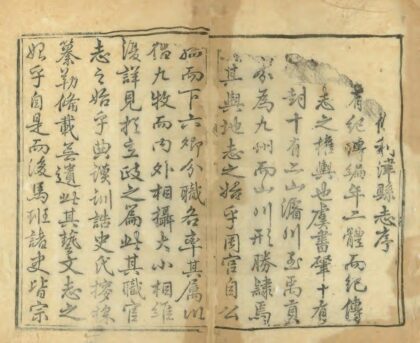 利津縣志序
有紀傳編年二體而紀傳
志之權輿也虞書肇十有
封十有二山濬川至禹貢
分為九州而山川形勝隸焉
其輿地志之始乎周官自公
孤而下六卿分職各率其属以
倡九牧而內外相攝大小相維
復詳見於立政之篇此其職官
志之始乎典謨訓誥史氏採
纂勒備載無遺此其藝文志之
始乎自是而後馬班諸史皆宗